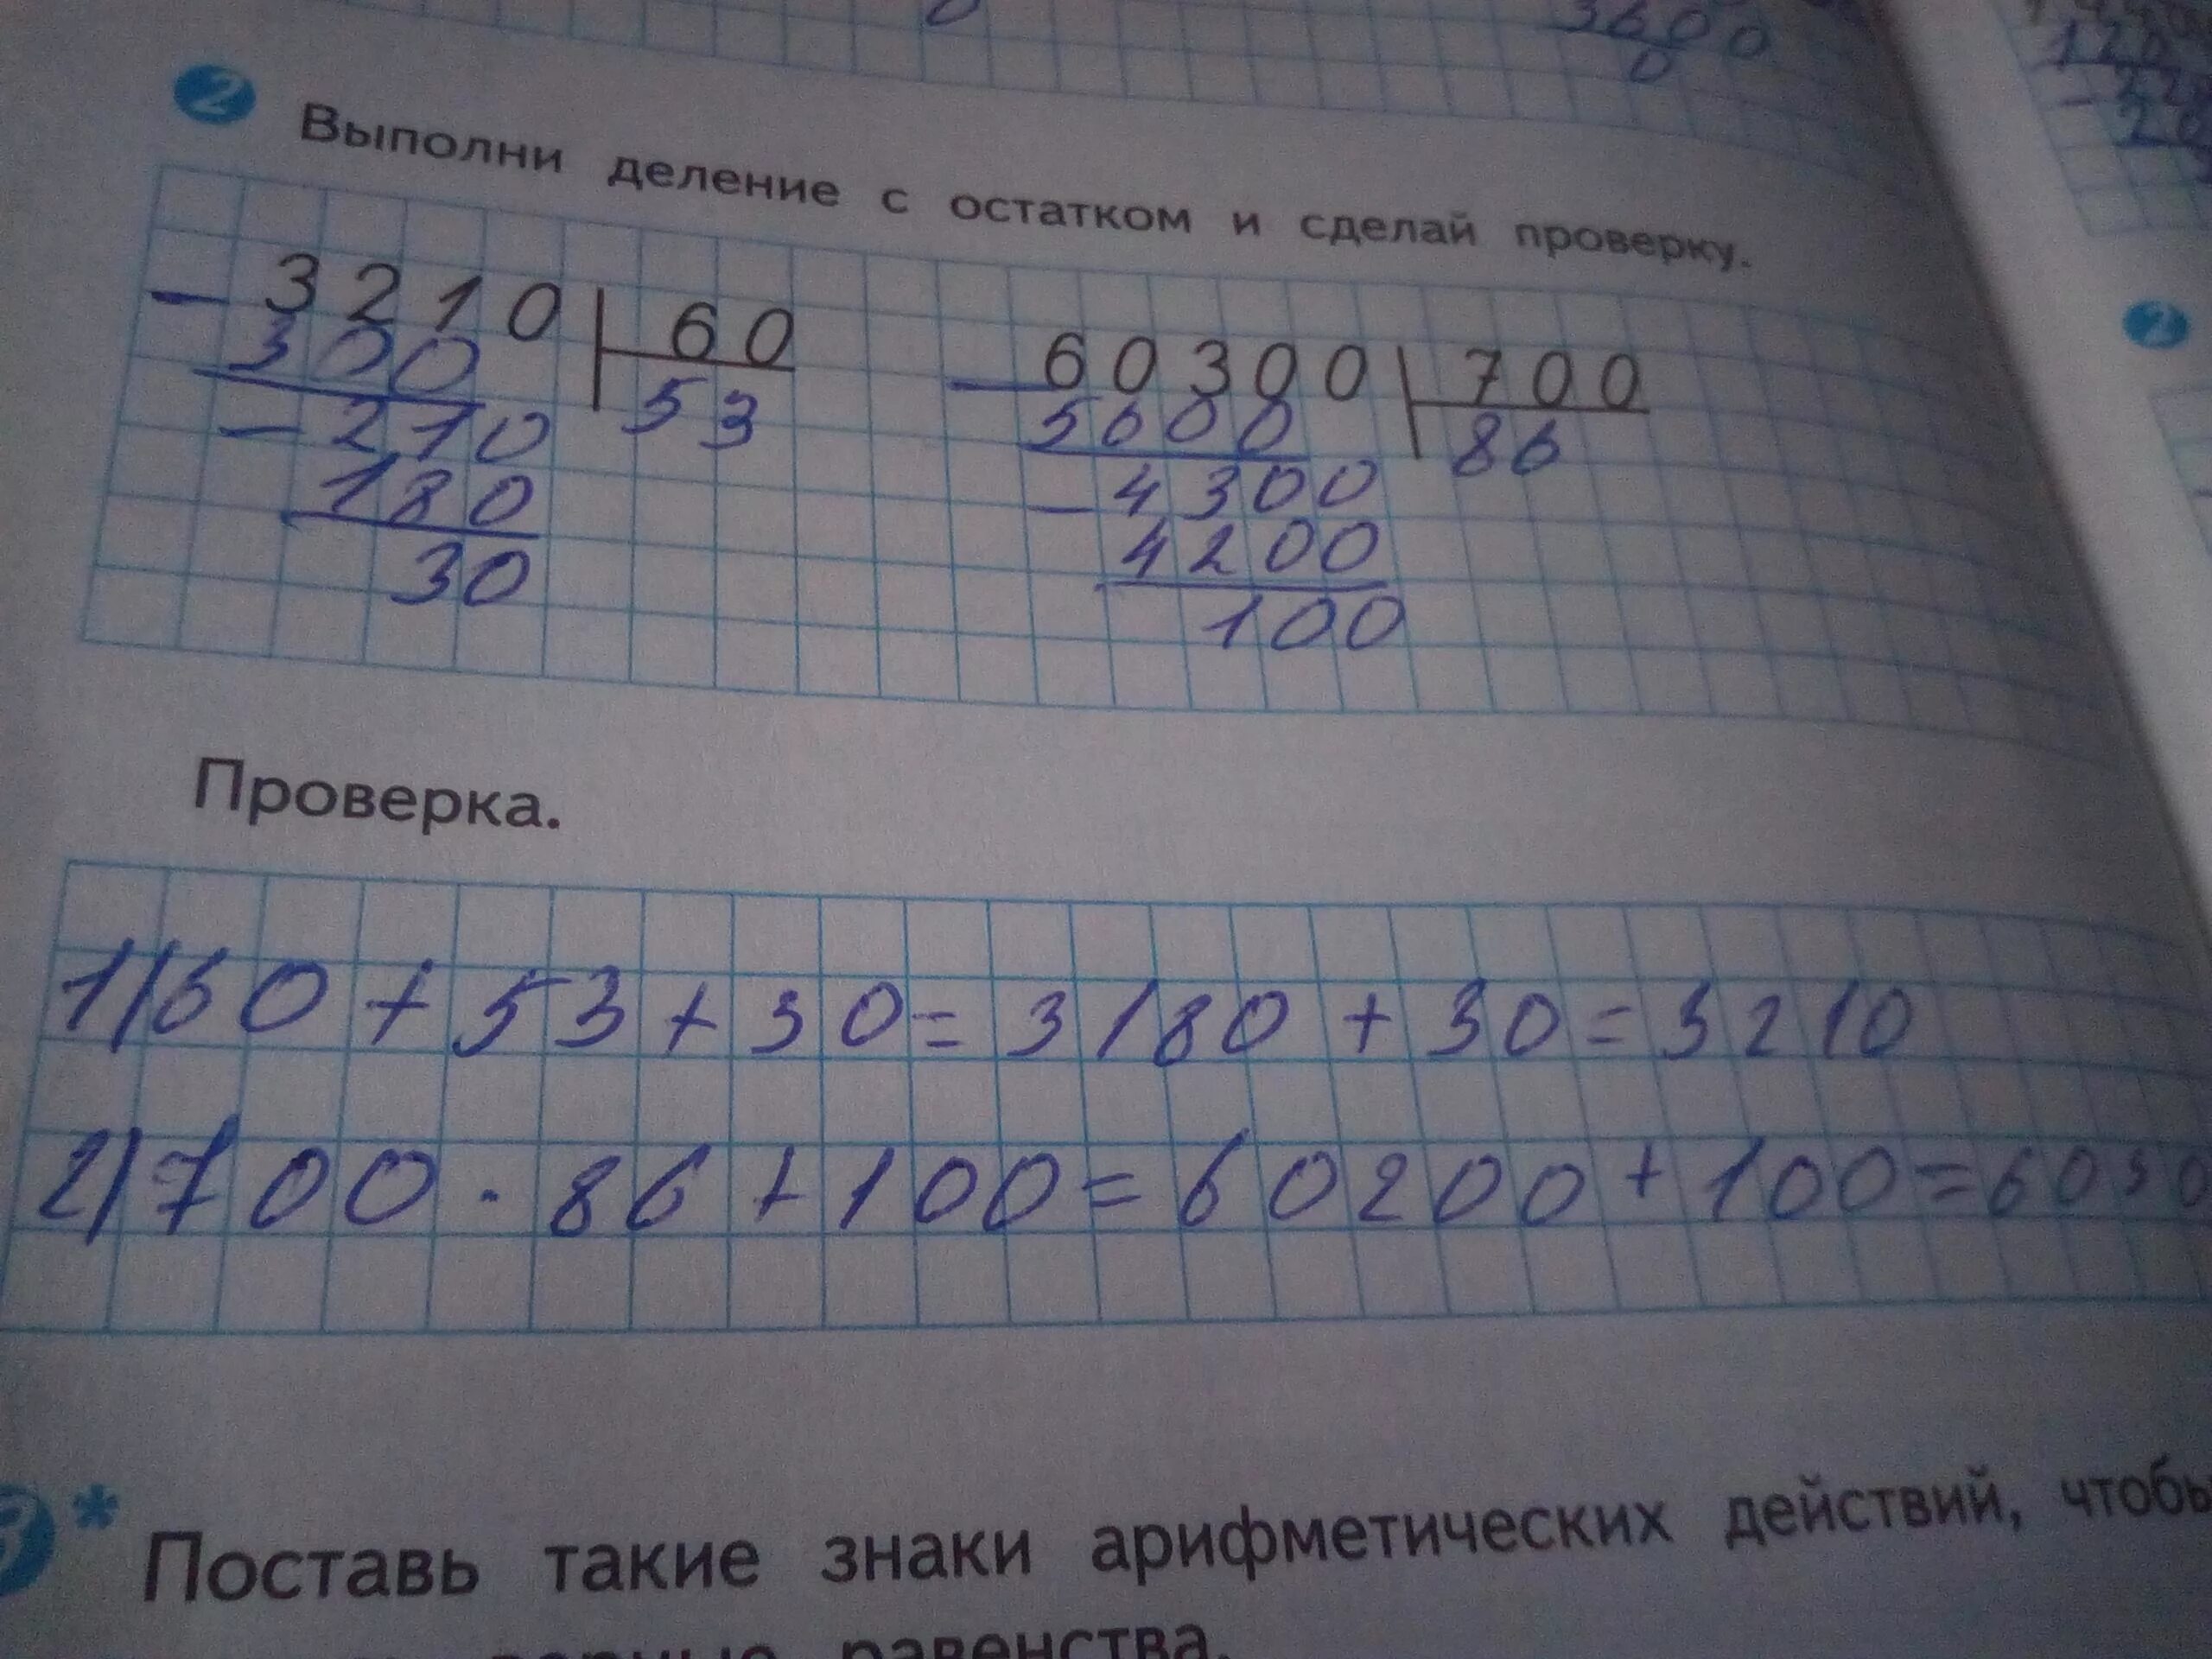 3600
0
2 Выполни деление с остатком и сделай проверку.
- 3210 | 60
300 53
- 210
180
30
- 60300 | 700
5600 86
- 4300
4200
100
Проверка.
1) 60 + 53 + 30 = 3180 + 30 = 3210
2) 700 · 86 + 100 = 60200 + 100 = 6030
3* Поставь такие знаки арифметических действий, чтобы
равенства.
120
2